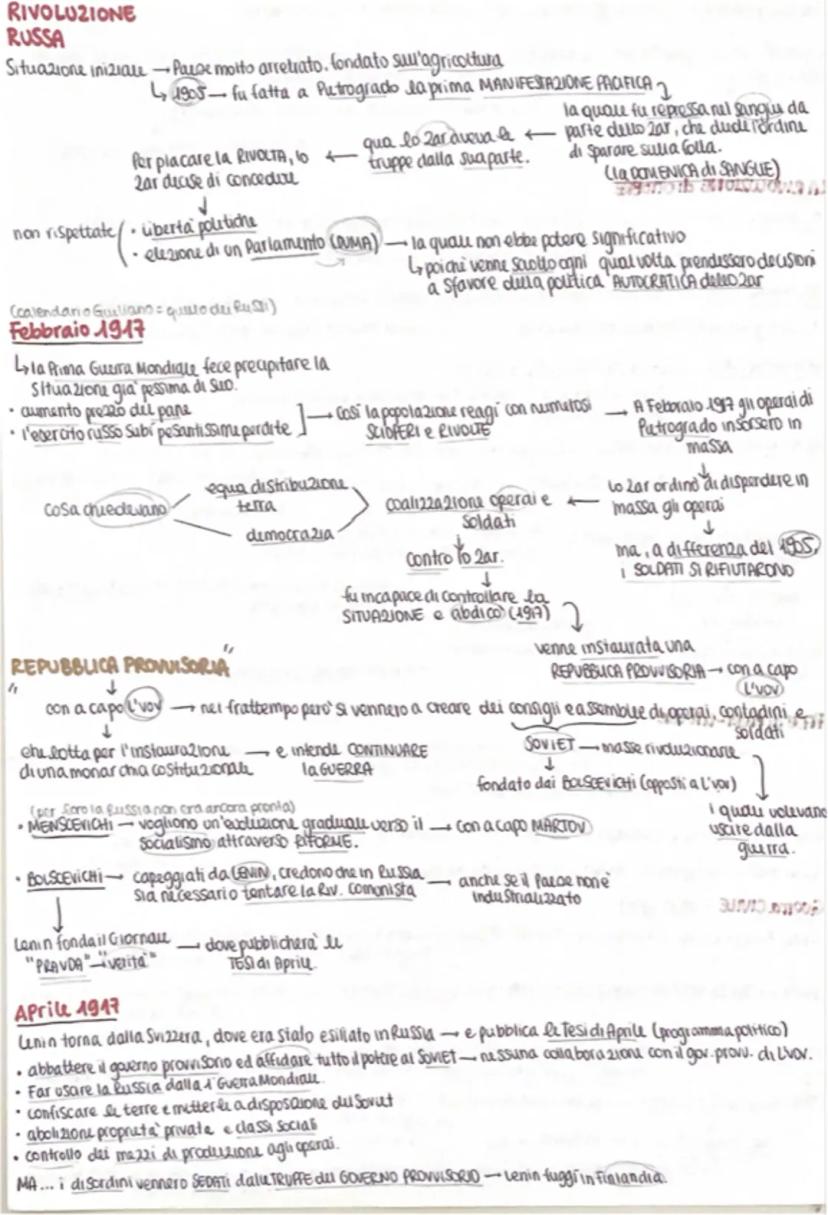 RIVOLUZIONE
RUSSA
Situazione iniziale → Paese molto arretrato, fondato sull'agricoltura
↳ 1905 — fu fatta a Pietrogrado la prima MANIFESTAZIONE PACIFICA
la quale fu repressa nel sangue da
parte dello Zar, che diede l'ordine
di sparare sulla folla.
(la DOMENICA di SANGUE)
qua lo Zar aveva le
truppe dalla sua parte.
Per placare la RIVOLTA, lo
Zar decise di concedere
non rispettate
• libertà politiche
• elezione di un Parlamento (DUMA) → la quale non ebbe potere significativo
↳ poiché venne sciolto ogni qual volta prendessero decisioni
a sfavore della politica AUTOCRATICA dello Zar
(calendario Giuliano = quello dei Russi)
Febbraio 1917
↳ la Prima Guerra Mondiale fece precipitare la
situazione già pessima di suo.
• aumento prezzo del pane
• l'esercito russo subì pesantissime perdite
→ Così la popolazione reagì con numerosi
SCIOPERI e RIVOLTE
→ A Febbraio 1917 gli operai di
Pietrogrado insorsero in
massa
lo Zar ordinò di disperdere in
massa gli operai
ma, a differenza del 1905,
i SOLDATI SI RIFIUTARONO
cosa chiedevano
equa distribuzione
terra
democrazia
coalizzazione operai e
soldati
contro lo Zar.
fu incapace di controllare la
SITUAZIONE e abdicò (1917)
venne instaurata una
REPUBBLICA PROVVISORIA → con a capo
L'vov
"REPUBBLICA PROVVISORIA"
con a capo L'vov → nel frattempo però si vennero a creare dei consigli e assemblee di operai, contadini e
soldati
che lotta per l'instaurazione → e intende CONTINUARE
di una monarchia costituzionale la GUERRA
SOVIET → masse rivoluzionarie
fondato dai BOLSCEVICHI (opposti a L'vov)
i quali volevano
uscire dalla
guerra.
(per loro la Russia non era ancora pronta)
• MENSCEVICHI → vogliono un'evoluzione graduale verso il → con a capo MARTOV
socialismo attraverso RIFORME.
• BOLSCEVICHI → capeggiati da LENIN, credono che in Russia → anche se il Paese non è
sia necessario tentare la Riv. comunista industrializzato
Lenin fonda il Giornale → dove pubblicherà le
"PRAVDA" → "verità" TESI di Aprile.
Aprile 1917
Lenin torna dalla Svizzera, dove era stato esiliato in Russia → e pubblica le Tesi di Aprile (programma politico)
• abbattere il governo provvisorio ed affidare tutto il potere ai SOVIET → nessuna collaborazione con il gov. provv. di L'vov.
• Far uscire la Russia dalla 1ª Guerra Mondiale.
• confiscare le terre e metterle a disposizione dei Soviet
• abolizione proprietà privata e classi sociali
• controllo dei mezzi di produzione agli operai.
MA... i disordini vennero SEDATI dalle TRUPPE del GOVERNO PROVVISORIO → Lenin fuggì in Finlandia.